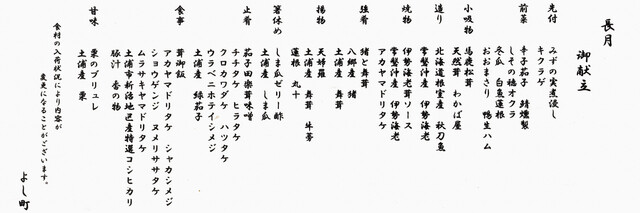 長月
御献立
先付
みずの実煮浸し
キクラゲ
前菜
しその穂オクラ
辛子茄子 鯖燻製
冬瓜 白魚蓮根
おおまさり 鴨生ハム
小吸物
馬鹿松茸
天然茸 わかば屋
造り
北海道根室産 秋刀魚
常磐沖産 伊勢海老
焼物
伊勢海老茸ソース
常磐沖産 伊勢海老
アカヤマドリタケ
強肴
猪と舞茸
八郷産 猪
土浦産 舞茸
揚物
天婦羅
土浦産 舞茸 牛蒡
蓮根 丸十
箸休め
しま瓜ゼリー酢
土浦産 しま瓜
止肴
茄子田楽茸味噌
チチタケ ヒラタケ
クロカワタケ ハツタケ
ウラベニホテイシメジ
土浦産 緑茄子
食事
茸御飯
アカヤマドリタケ シャカシメジ
ショウゲンジ ヌメリササタケ
ムラサキヤマドリタケ
土浦市新治地区産特選コシヒカリ
豚汁 香の物
甘味
栗のブリュレ
土浦産 栗
食材の入荷状況により内容が
変更になることがございます。
よし町